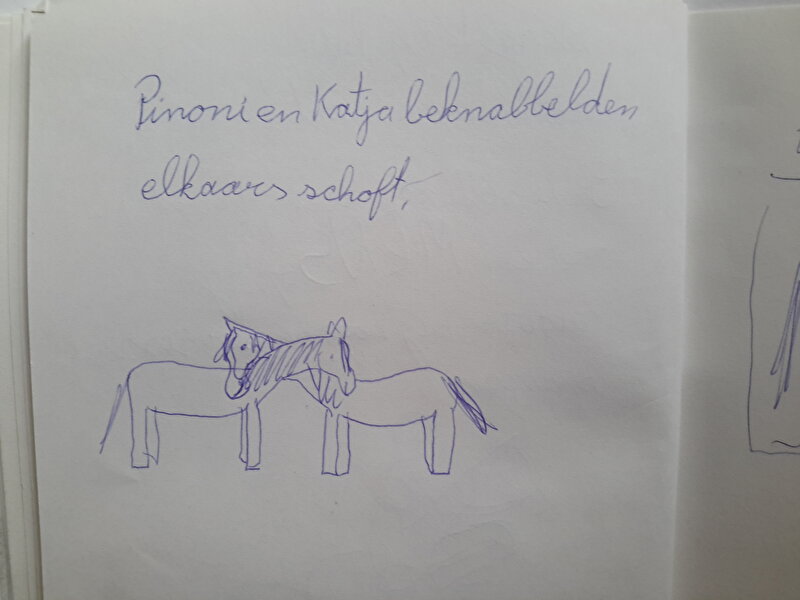 Pinoni en Katja beknabbelden
elkaars schoft.